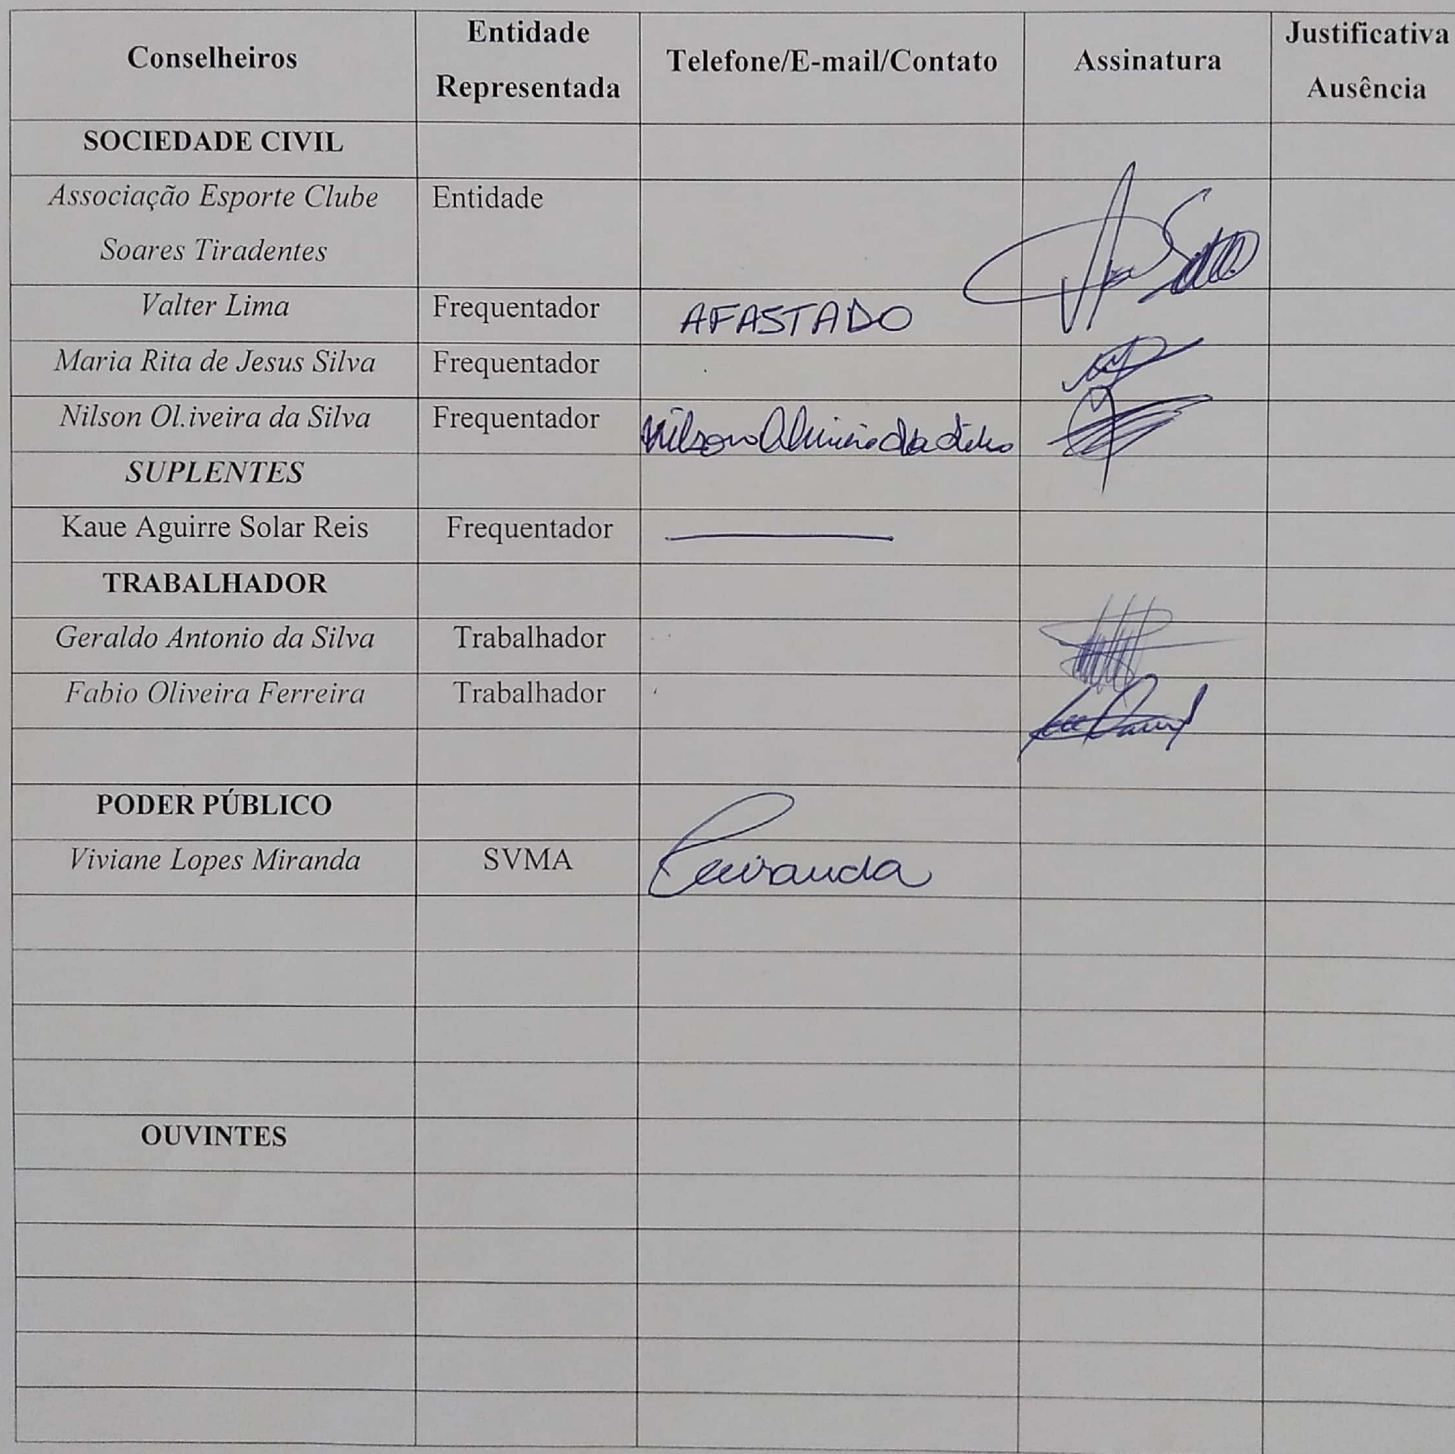 Conselheiros
Entidade
Representada
Telefone/E-mail/Contato
Assinatura
Justificativa
Ausência
SOCIEDADE CIVIL
Associação Esporte Clube
Soares Tiradentes
Entidade
Valter Lima
Frequentador
AFASTADO
Maria Rita de Jesus Silva
Frequentador
Nilson Ol.iveira da Silva
Frequentador
Nilson
SUPLENTES
Kaue Aguirre Solar Reis
Frequentador
TRABALHADOR
Geraldo Antonio da Silva
Trabalhador
Fabio Oliveira Ferreira
Trabalhador
PODER PÚBLICO
Viviane Lopes Miranda
SVMA
OUVINTES